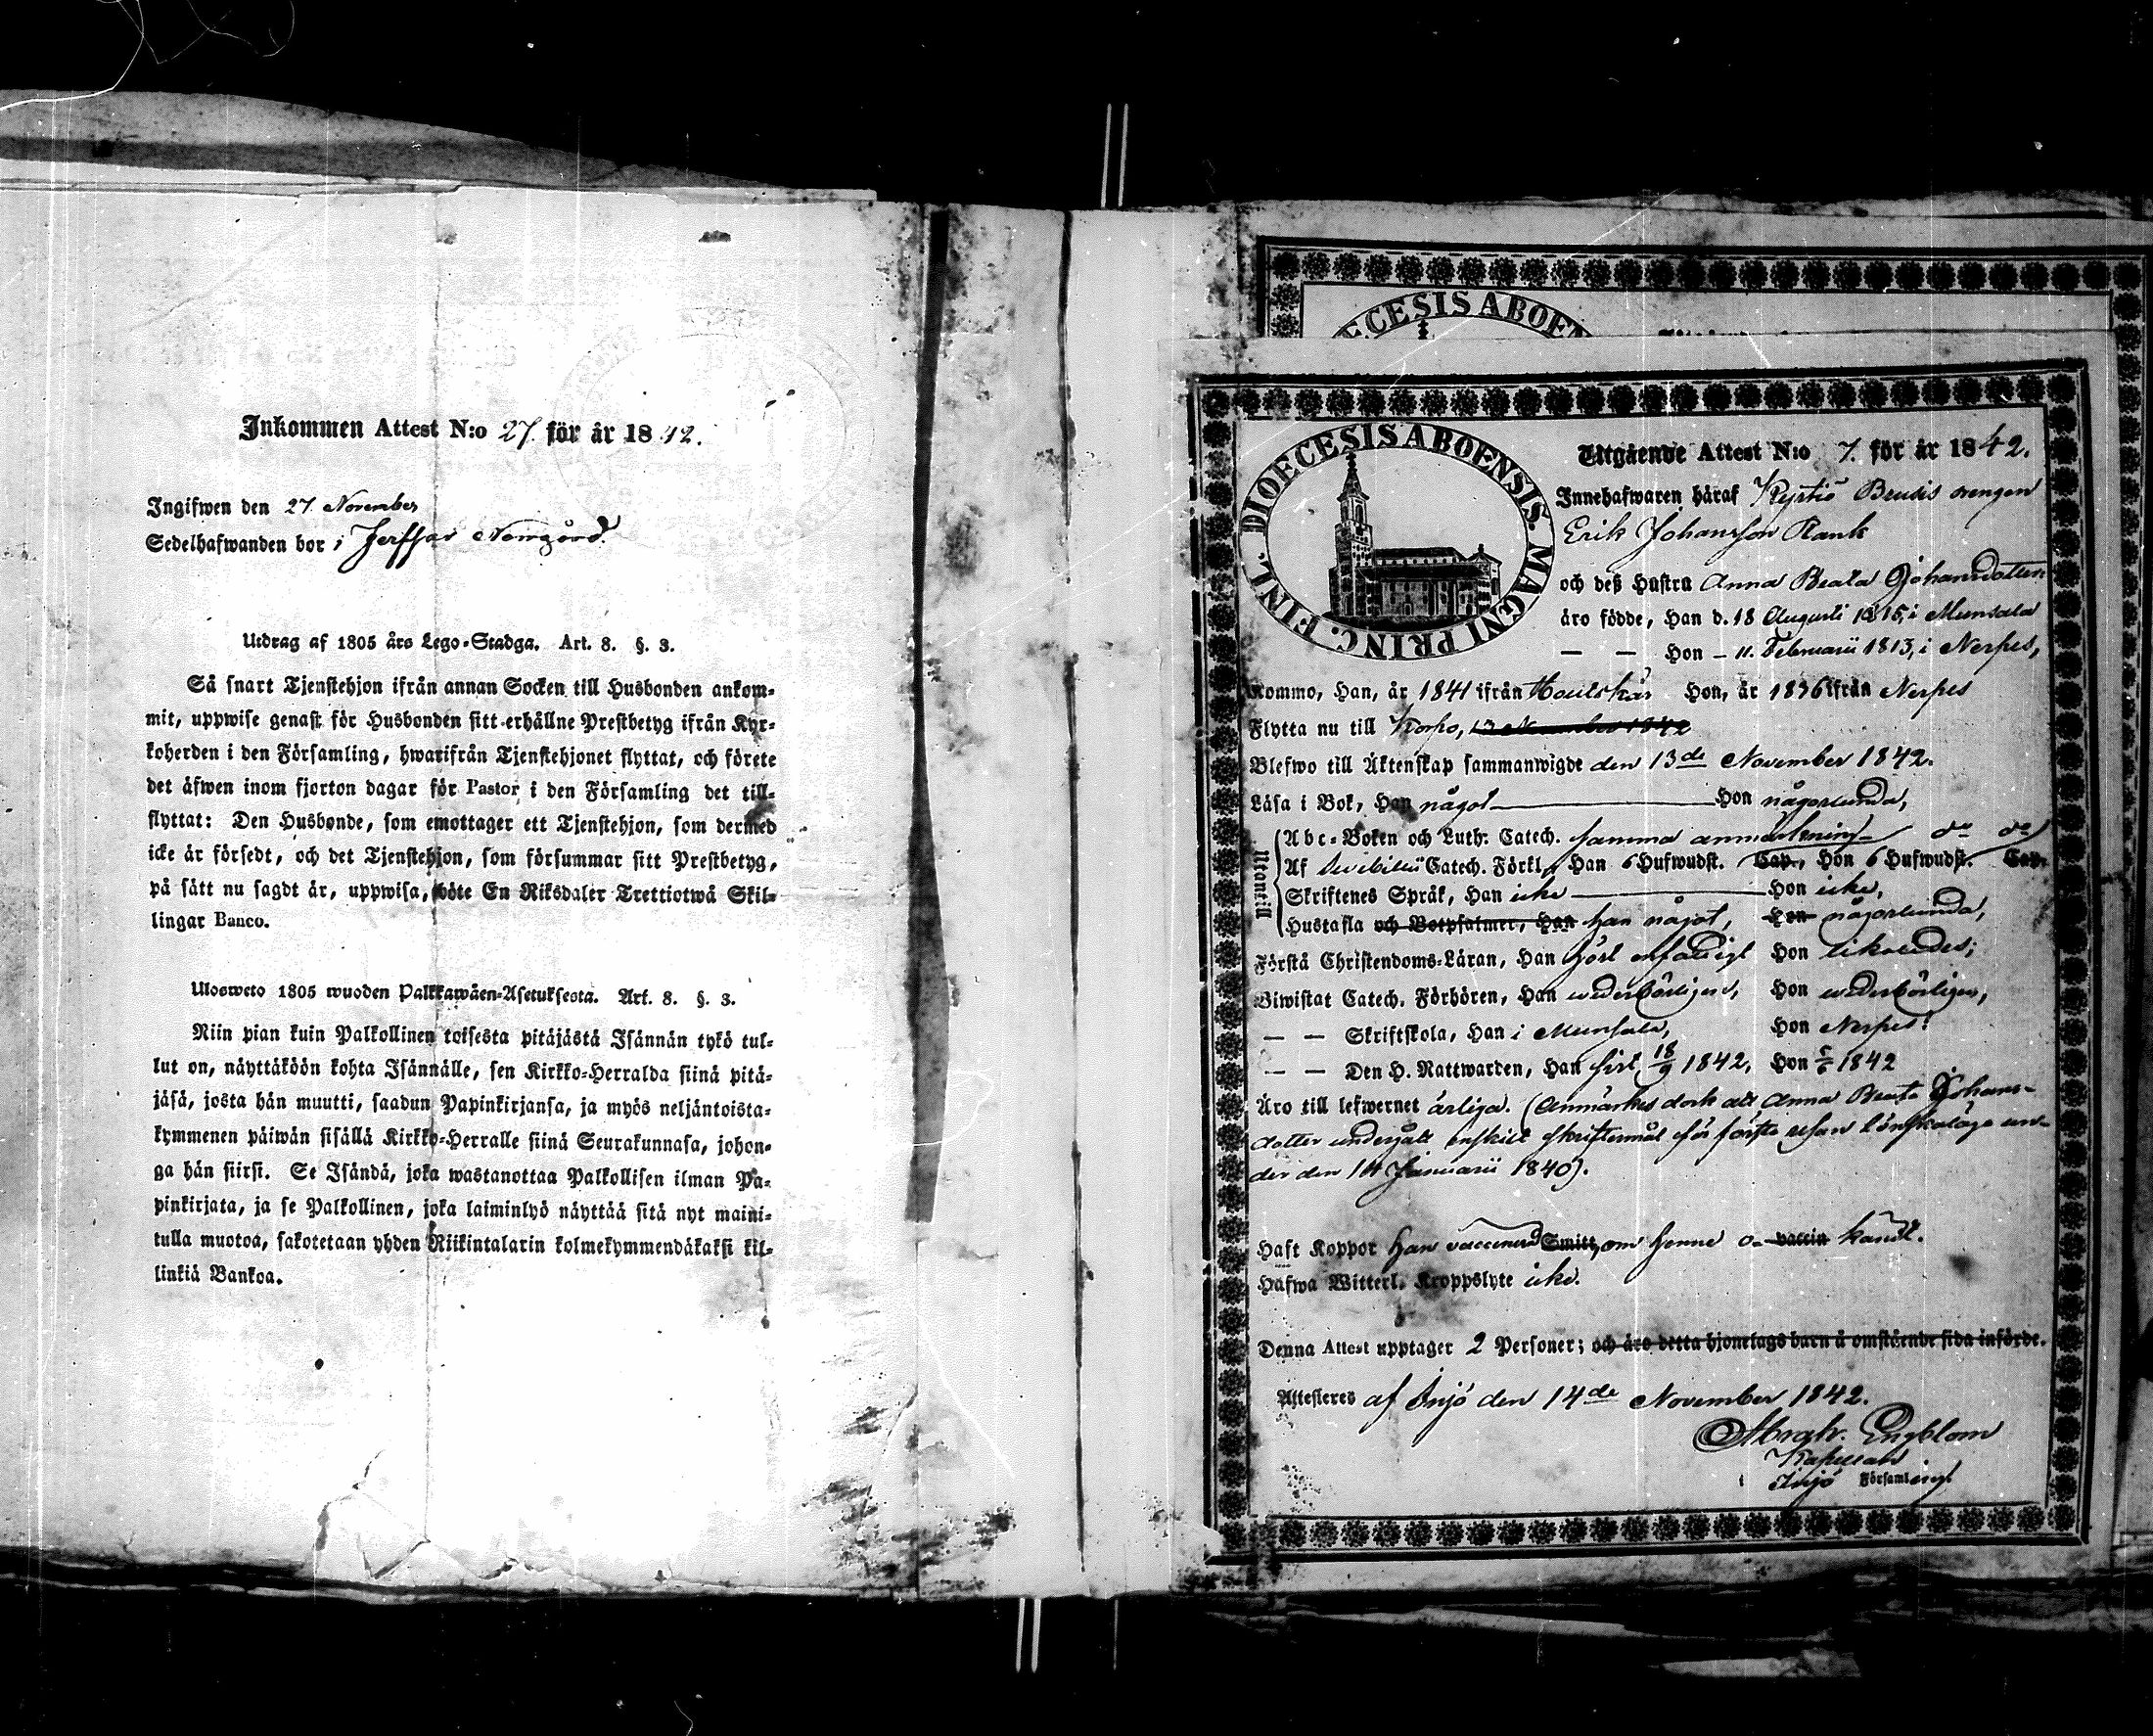 Inkommen Attest N:o 27. för år 1842.
Ingifwen den 27 November
Sedelhafwanden bor i
Utdrag af 1805 års Lego-Stadga. Art. 8. §. 3.
Så snart Tjenstehjon ifrån annan Socken till Husbonden ankom-
mit, uppwise genast för Husbonden sitt erhållne Prestbetyg ifrån Kyr-
koherden i den Församling, hwarifrån Tjenstehjonet flyttat, och förete
det äfwen inom fjorton dagar för Pastor i den Församling det till-
flyttat: Den Husbonde, som emottager ett Tjenstehjon, som dermed
icke är försedt, och det Tjenstehjon, som försummar sitt Prestbetyg,
på sätt nu sagdt är, uppwisa, böte En Riksdaler Trettiotwå Skil-
lingar Banco.
Ulosweto 1805 wuoden Palkkawäen-Asetuksesta. Art. 8. §. 3.
Niin pian kuin Palkollinen toisesta pitäjästä Isännän tykö tul-
lut on, näyttäköön kohta Isännälle, sen Kirkko-Herralda siinä pitä-
jäsä, josta hän muutti, saadun Papinkirjansa, ja myös neljäntoista-
kymmenen päiwän sisällä Kirkko-Herralle siinä Seurakunnasa, johon-
ga hän siirsi. Se Isändä, joka wastanottaa Palkollisen ilman Pa-
pinkirjata, ja se Palkollinen, joka laiminlyö näyttää sitä nyt maini-
tulla muotoa, sakotetaan yhden Riikintalarin kolmekymmendäkaksi kil-
linkiä Bankoa.
ECESIS ABOEN
DIOECESIS ABOENSIS. MAGNI PRINC. FINL.
Utgående Attest N:o 7. för år 1842.
Innehafwaren häraf Kyrtiö Brusis drengen
Erik Johansson Rank
och deß Hustru Anna Beata Johansdotter
äro födde, Han d. 18 Augusti 1815, i Munsala
— — Hon – 11. Februarii 1813, i Nerpes,
Kommo, Han, år 1841 ifrån Houtskär Hon, år 1836 ifrån Nerpes
Flytta nu till Korpo, 13 November 1842
Blefwo till Äktenskap sammanwigde den 13de November 1842.
Läsa i Bok, Han något Hon någorlunda,
Utantill
Abc-Boken och Luth. Catech. samma anmärkning do do
Af Svebilii Catech. Förkl., Han 6 Hufwudst. Cap., Hon 6 Hufwudst. Cap.
Skriftenes Språk, Han icke Hon icke,
Hustafla och Botpsalmer, Han han något, Hon någorlunda,
Förstå Christendoms-Läran, Han högst enfaldigt Hon likaledes;
Biwistat Catech. Förhören, Han wederbörligen, Hon wederbörligen,
— — Skriftskola, Han i Munsala, Hon Nerpes;
— — Den H. Nattwarden, Han sist 18/9 1842, Hon 5/6 1842
Äro till lefwernet ärliga. (Anmärkes dock att Anna Beata Johans-
dotter undergått enskilt skriftermål för första resan lönskaläge un-
der den 14 Januarii 1840).
Haft Koppor Han vaccinerad Smitt, om henne o- vaccin kändt.
Häfwa Witterl. Kroppslyte icke.
Denna Attest upptager 2 Personer; och äro detta hjonelags barn å omstående sida införde.
Attesteres af Iniö den 14de November 1842.
Abrah. Engblom
Kapellan
i Iniö Församling.